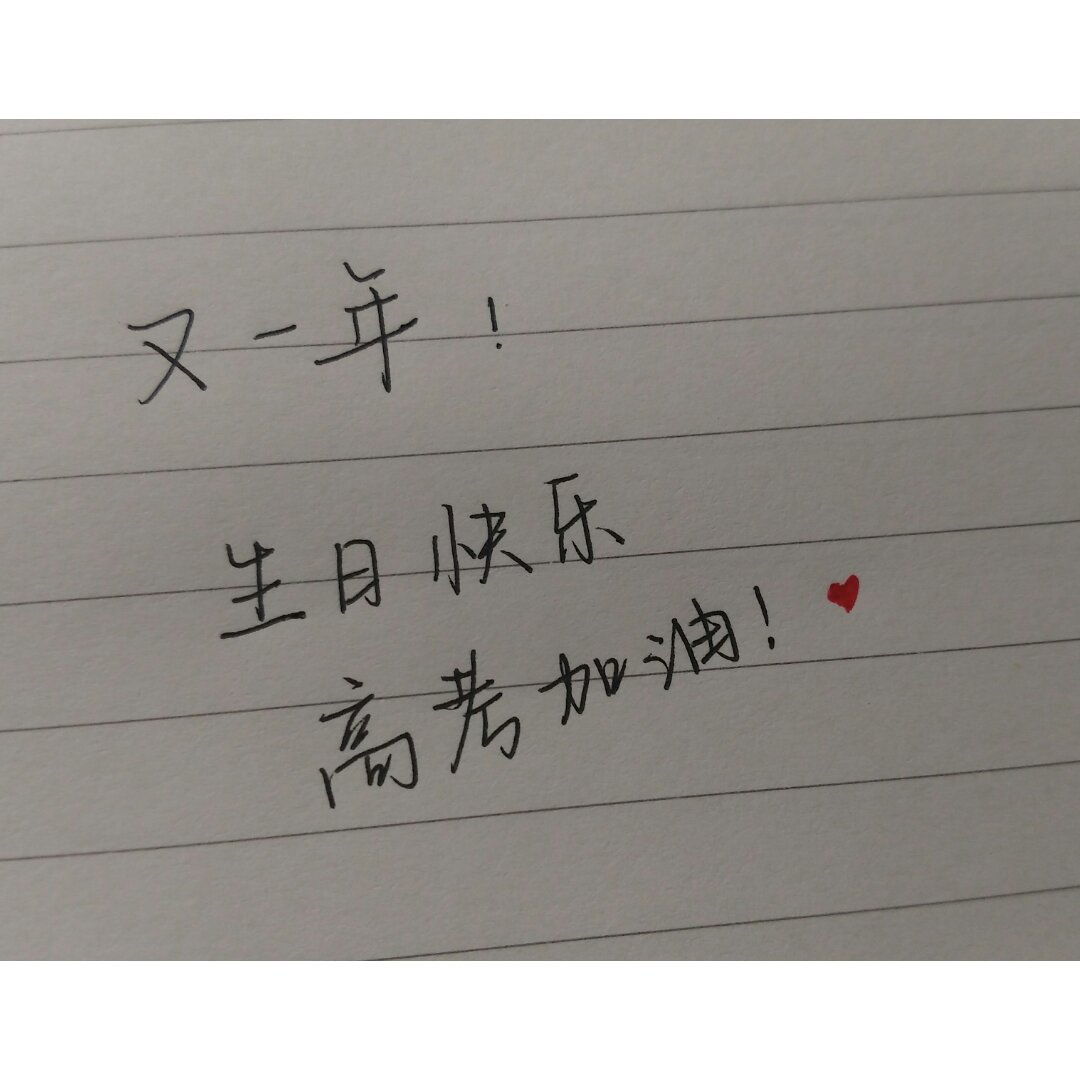 又一年！
生日快乐
高考加油！